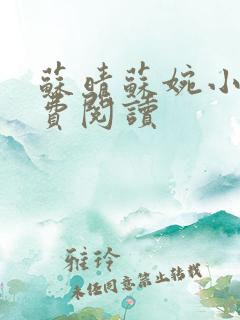 蘇晴蘇婉小
費閱讀
雅玲
未經同意禁止轉載